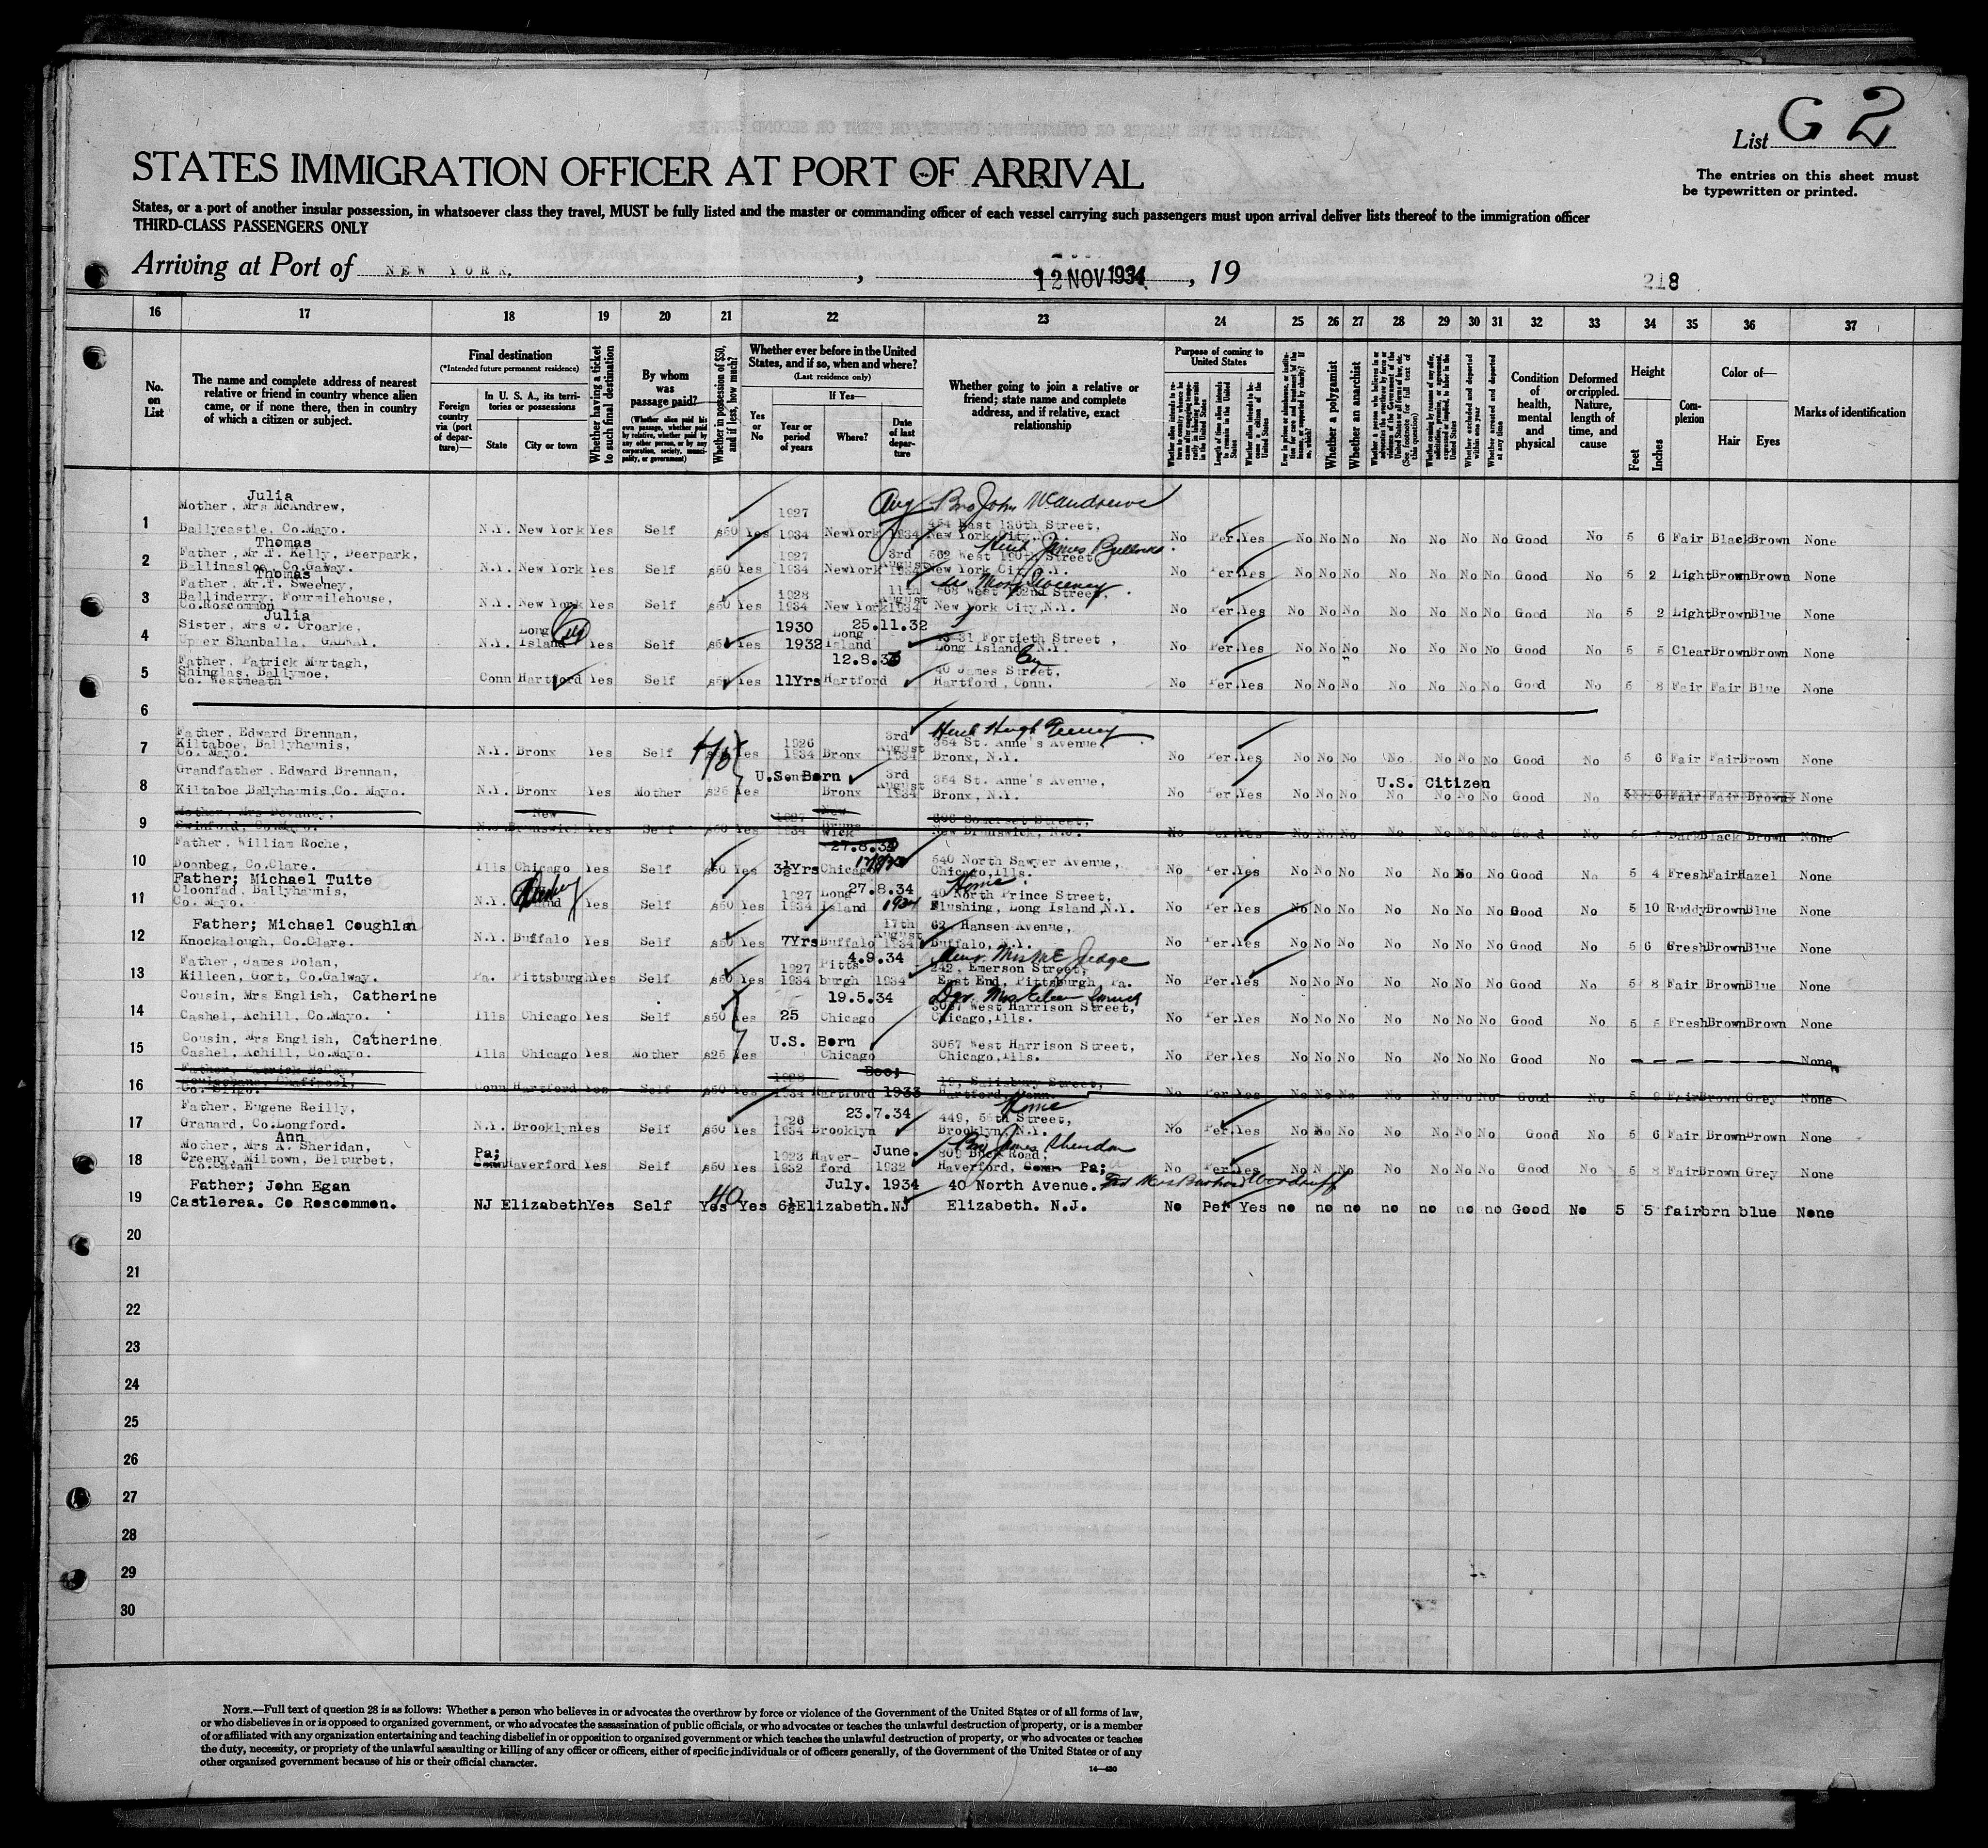 List G 2
STATES IMMIGRATION OFFICER AT PORT OF ARRIVAL
The entries on this sheet must
be typewritten or printed.
States, or a port of another insular possession, in whatsoever class they travel, MUST be fully listed and the master or commanding officer of each vessel carrying such passengers must upon arrival deliver lists thereof to the immigration officer
THIRD-CLASS PASSENGERS ONLY
Arriving at Port of NEW YORK. , 12 NOV 1934 , 19
218
16 17 18 19 20 21 22 23 24 25 26 27 28 29 30 31 32 33 34 35 36 37
No. on List
The name and complete address of nearest relative or friend in country whence alien came, or if none there, then in country of which a citizen or subject.
Final destination
(*Intended future permanent residence)
Foreign country via (port of departure)—
In U. S. A., its territories or possessions
State City or town
Whether having a ticket to such final destination
By whom was passage paid?
(Whether alien paid his own passage, whether paid by relative, whether paid by any other person, or by any corporation, society, municipality, or government)
Whether in possession of $50, and if less, how much?
Whether ever before in the United States, and if so, when and where?
(Last residence only)
Yes or No
If Yes—
Year or period of years
Where?
Date of last departure
Whether going to join a relative or friend; state name and complete address, and if relative, exact relationship
Purpose of coming to United States
Length of time alien intends to remain in the United States
Whether alien intends to become a citizen of the United States
Whether a polygamist
Whether an anarchist
(See footnote for full text of this question)
Whether excluded and deported within one year
Whether arrested and deported at any time
Condition of health, mental and physical
Deformed or crippled. Nature, length of time, and cause
Height
Feet Inches
Complexion
Color of—
Hair Eyes
Marks of identification
Julia
1 Mother, Mrs McAndrew,
Ballycastle, Co.Mayo. N.Y. New York Yes Self $50 Yes 1927 1934 NewYork Aug 1934 Bro John McAndrew 454 East 130th Street, New York City, N.Y. No Per. Yes No No No No No No No Good No 5 6 Fair Black Brown None
Thomas
2 Father, Mr T. Kelly, Deerpark,
Ballinasloe, Co.Galway. N.Y. New York Yes Self $50 Yes 1927 1934 NewYork 3rd August 1934 562 West 190th Street New York City, N.Y. No Per. Yes No No No No No No No Good No 5 2 Light Brown Brown None
Thomas
3 Father, Mr.T. Sweeney,
Ballinderry, Fourmilehouse,
Co.Roscommon N.Y. New York Yes Self $50 Yes 1928 1934 New York 11th August 1934 Mary Sweeney West Street, New York City,N.Y. No Per. Yes No No No No No No No Good No 5 2 Light Brown Blue None
Julia
4 Sister, Mrs J. Croarke,
Upper Shanballa, GALWAY. N.Y. Long Island City Yes Self $50 Yes 1930 1932 Long Island 25.11.32 Fortieth Street, Long Island City N.Y. No Per. Yes No No No No No No No Good No 5 5 Clear Brown Brown None
5 Father, Patrick Murtagh,
Shinglas, Ballymoe,
Co. Westmeath Conn Hartford Yes Self $50 Yes 11Yrs Hartford 40 James Street, Hartford, Conn. No Per. Yes No No No No No No No Good No 5 8 Fair Fair Blue None
6
7 Father, Edward Brennan,
Kiltaboe, Ballyhaunis,
Co. Mayo. N.Y. Bronx Yes Self Yes 1926 1934 Bronx 3rd August 1934 354 St. Anne's Avenue, Bronx, N.Y. No Per. Yes No No No No No No No Good No 5 6 Fair Fair Brown None
8 Grandfather, Edward Brennan,
Kiltaboe Ballyhaunis,Co. Mayo. N.Y. Bronx Yes Mother $25 Yes U.S. Born Bronx 3rd August 1934 354 St. Anne's Avenue, Bronx, N.Y. No Per. Yes No No No U.S. Citizen No No No No Good No 5 6 Fair Fair Brown None
9 Mother, Mrs Devaney,
Swinford, Co.Mayo. N.J. New Brunswick Yes Self $50 Yes 1927 1934 New Brunswick Somerset Street, New Brunswick, N.J. No Per. Yes No No No No No No No Good No Dark Black Brown None
10 Father, William Roche,
Doonbeg, Co.Clare. Ills Chicago Yes Self $50 Yes 3½Yrs Chicago 27.8.34 540 North Sawyer Avenue, Chicago,Ills. No Per. Yes No No No No No No No Good No 5 4 Fresh Fair Hazel None
11 Father; Michael Tuite
Cloonfad, Ballyhaunis,
Co. Mayo. N.Y. Yes Self $50 Yes 1927 1934 Long Island 27.8.34 1934 Home 40 North Prince Street, Flushing, Long Island, N.Y. No Per. Yes No No No No No No No Good No 5 10 Ruddy Brown Blue None
12 Father; Michael Coughlan
Knockalough, Co.Clare. N.Y. Buffalo Yes Self $50 Yes 7Yrs Buffalo 17th August 1934 62, Hansen Avenue, Buffalo, N.Y. No Per. Yes No No No No No No No Good No 5 6 Fresh Brown Blue None
13 Father, James Dolan,
Killeen, Gort, Co.Galway. Pa. Pittsburgh Yes Self $50 Yes 1927 1934 Pittsburgh 4.9.34 1934 Judge 242, Emerson Street, East End, Pittsburgh, Pa. No Per. Yes No No No No No No No Good No 5 8 Fair Brown Blue None
14 Cousin, Mrs English, Catherine
Cashel, Achill, Co.Mayo. Ills Chicago Yes Self $50 Yes 25 Chicago 19.5.34 3057 West Harrison Street, Chicago,Ills. No Per. Yes No No No No No No No Good No 5 5 Fresh Brown Brown None
15 Cousin, Mrs English, Catherine
Cashel, Achill, Co.Mayo. Ills Chicago Yes Mother $25 Yes U.S. Born Chicago 3057 West Harrison Street, Chicago,Ills. No Per. Yes No No No No No No No Good No None
16 Father, Patrick McCoy,
Co. Sligo. Conn Hartford Yes Self $50 Yes 1928 1934 Hartford Dec; 1933 19, Salisbury Street, Hartford, Conn. No Per. Yes No No No No No No No Good No 5 8 Fair Brown Grey None
17 Father, Eugene Reilly,
Granard, Co.Longford. N.Y. Brooklyn Yes Self $50 Yes 1926 1934 Brooklyn 23.7.34 Home 449, Street, Brooklyn, N.Y. No Per. Yes No No No No No No No Good No 5 6 Fair Brown Brown None
Ann
18 Mother, Mrs A. Sheridan,
Creeny, Miltown, Belturbet,
Co.Cavan Pa; Conn Haverford Yes Self $50 Yes 1923 1932 Haverford June. 1932 Bro James Sheridan 809 Buck Road, Haverford, Conn. Pa; No Per. Yes No N No No No No No Good No 5 8 Fair Brown Grey None
19 Father; John Egan
Castlerea. Co Roscommon. NJ Elizabeth Yes Self Yes 40 Yes 6½ Elizabeth.NJ July. 1934 40 North Avenue. Elizabeth. N.J. No Per Yes no no no no no no no Good No 5 5 fair brn blue None
20
21
22
23
24
25
26
27
28
29
30
NOTE.—Full text of question 28 is as follows: Whether a person who believes in or advocates the overthrow by force or violence of the Government of the United States or of all forms of law,
or who disbelieves in or is opposed to organized government, or who advocates the assassination of public officials, or who advocates or teaches the unlawful destruction of property, or is a member
of or affiliated with any organization entertaining and teaching disbelief in or opposition to organized government or which teaches the unlawful destruction of property, or who advocates or teaches
the duty, necessity, or propriety of the unlawful assaulting or killing of any officer or officers, either of specific individuals or of officers generally, of the Government of the United States or of any
other organized government because of his or their official character.
14—420